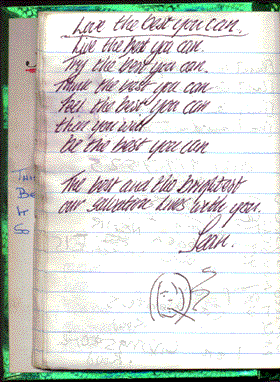 Live the best you can.
Live the best you can.
Try the best you can.
Think the best you can
Fall the best you can
then you will
be the best you can
The best and the brightest
our salvation lives with you.
Sean.
THIS
BE
IT
SO